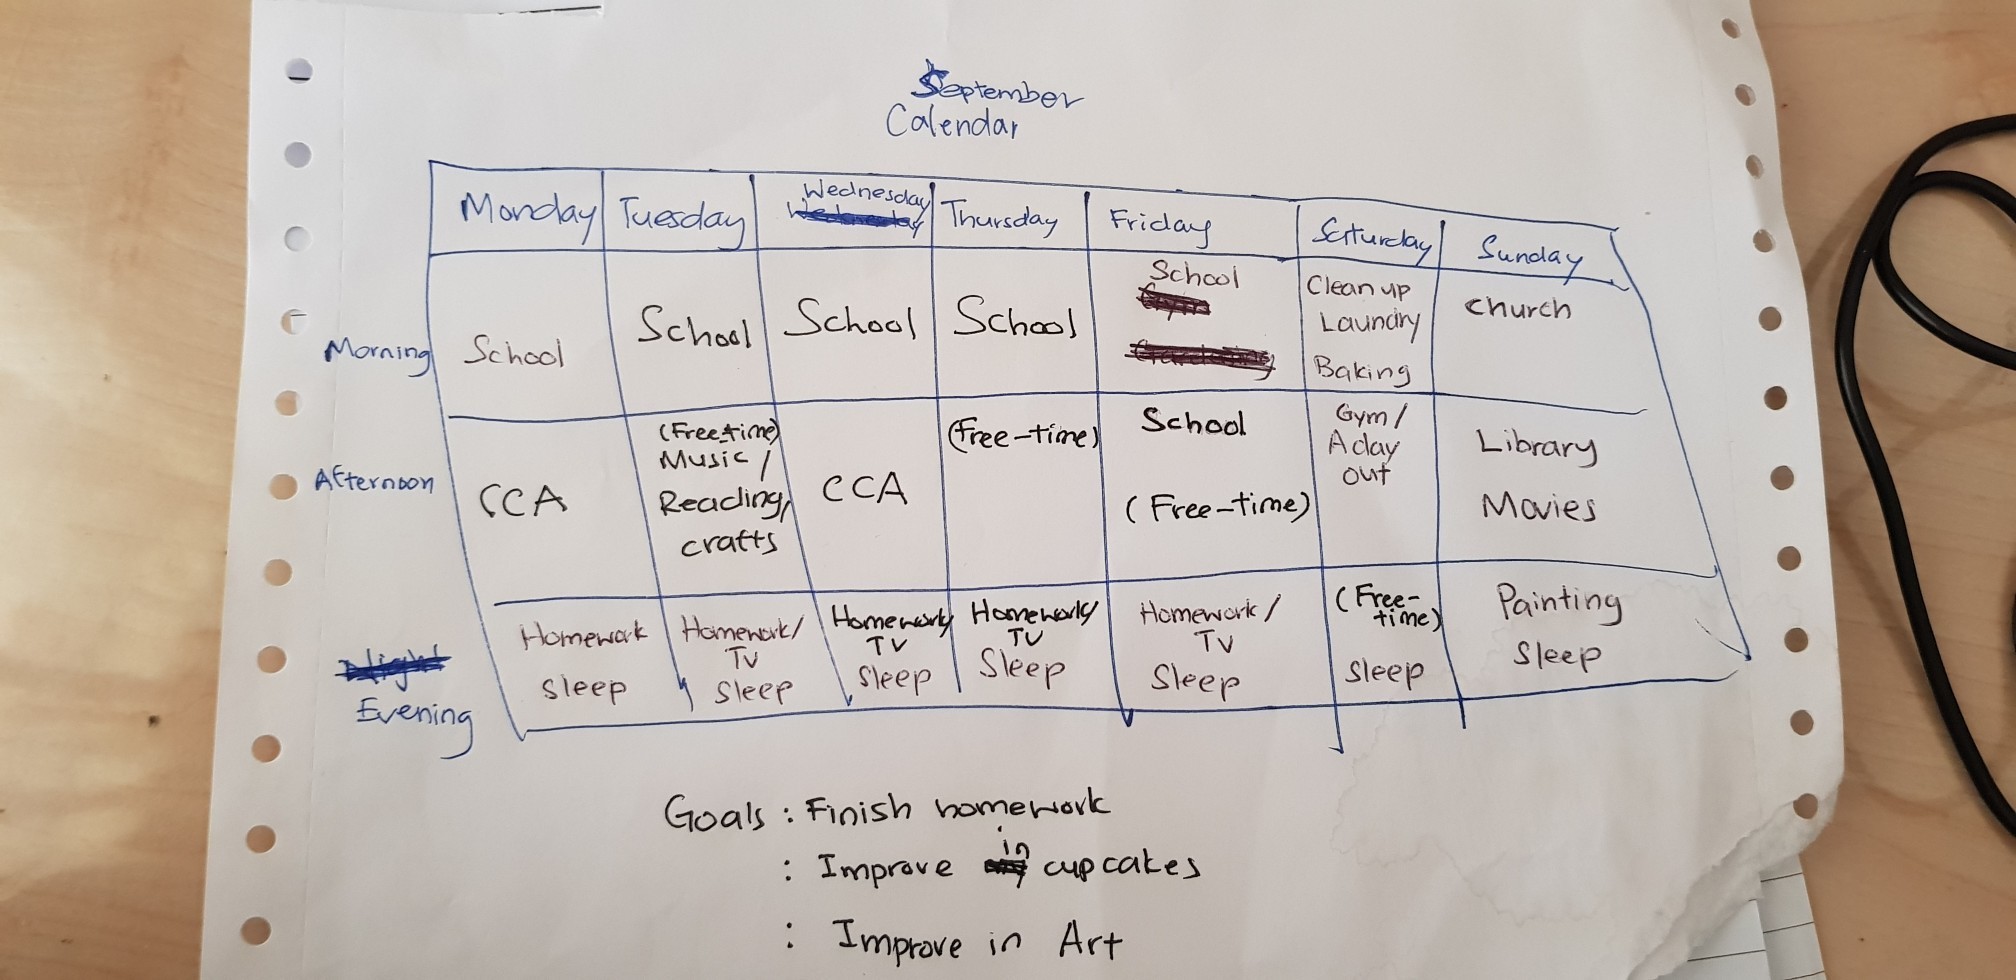 September
Calendar
Monday Tuesday Wednesday Thursday Friday Saturday Sunday
Morning
School
School
School
School
School
Clean up
Laundry
Baking
Church
Afternoon
CCA
(Free-time)
Music /
Reading,
crafts
CCA
(Free-time)
School
(Free-time)
Gym /
A day
out
Library
Movies
Evening
Homework
Sleep
Homework/
TV
Sleep
Homework/
TV
Sleep
Homework/
TV
Sleep
Homework /
TV
Sleep
(Free-
time)
Sleep
Painting
Sleep
Goals : Finish homework
: Improve in cupcakes
: Improve in Art